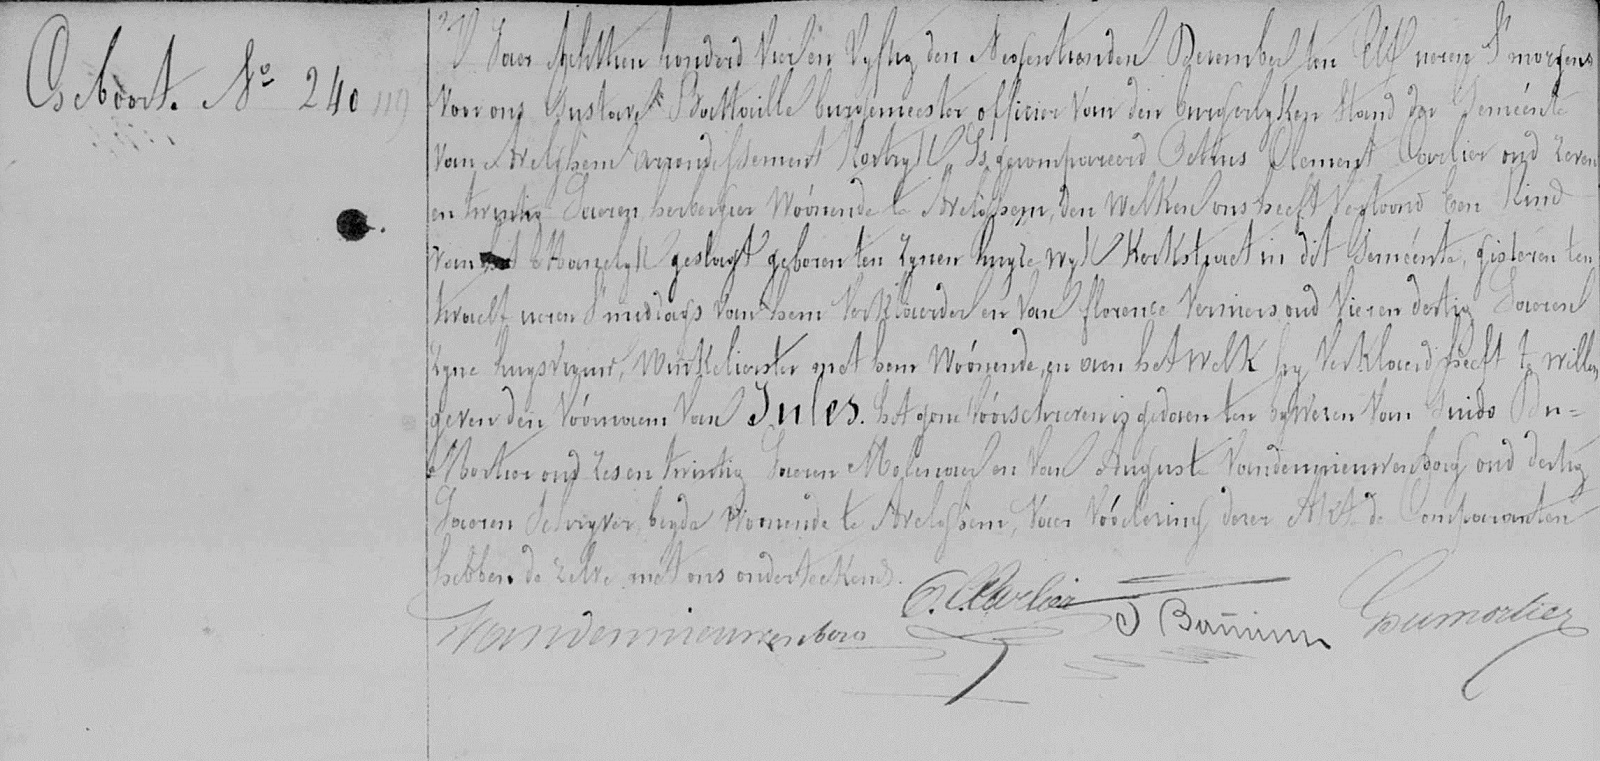 Geboort. No 240
Jaer Achttien honderd Vier en Vyftig den Negentienden December ten Elf uren S'morgens
Voor ons Gustave Battaille burgemeester officier Van den burgerlyken Stand der Gemeénte
Van Avelghem arrondissement Kortryk, Is gecompareerd Petrus Clement Carlier oud zeven
en twintig Jaeren, herbergier Woónende te Avelghem, den Welken ons heeft Vertoond Een Kind
van het Manelyk geslagt geboren ten zynen huyze wyk Kerkstraet in dit Gemeénte, gisteren ten
twaelf uren S'middags Van hem Verklaerder en Van florence Verriers oud Vier en dertig Jaeren
zyne huysvrouw, Winkelierster met hem Woónende, en aen het welk hy Verklaerd heeft te willen
geven den Vóórnaem Van Jules. het gone Vóórschreven is gedaen ten bywezen Van Guido Du=
Mortier oud zes en twintig Jaeren Molenaer en Van Auguste Vandennieuwenborg oud dertig
Jaeren Schryver, beyde Wonende te Avelghem, Naer Vóórlezing dezer Akt de Comparanten
hebben de zelve met ons onderteekend.
P. C. Carlier
Vandennieuwenborg
Dumortier